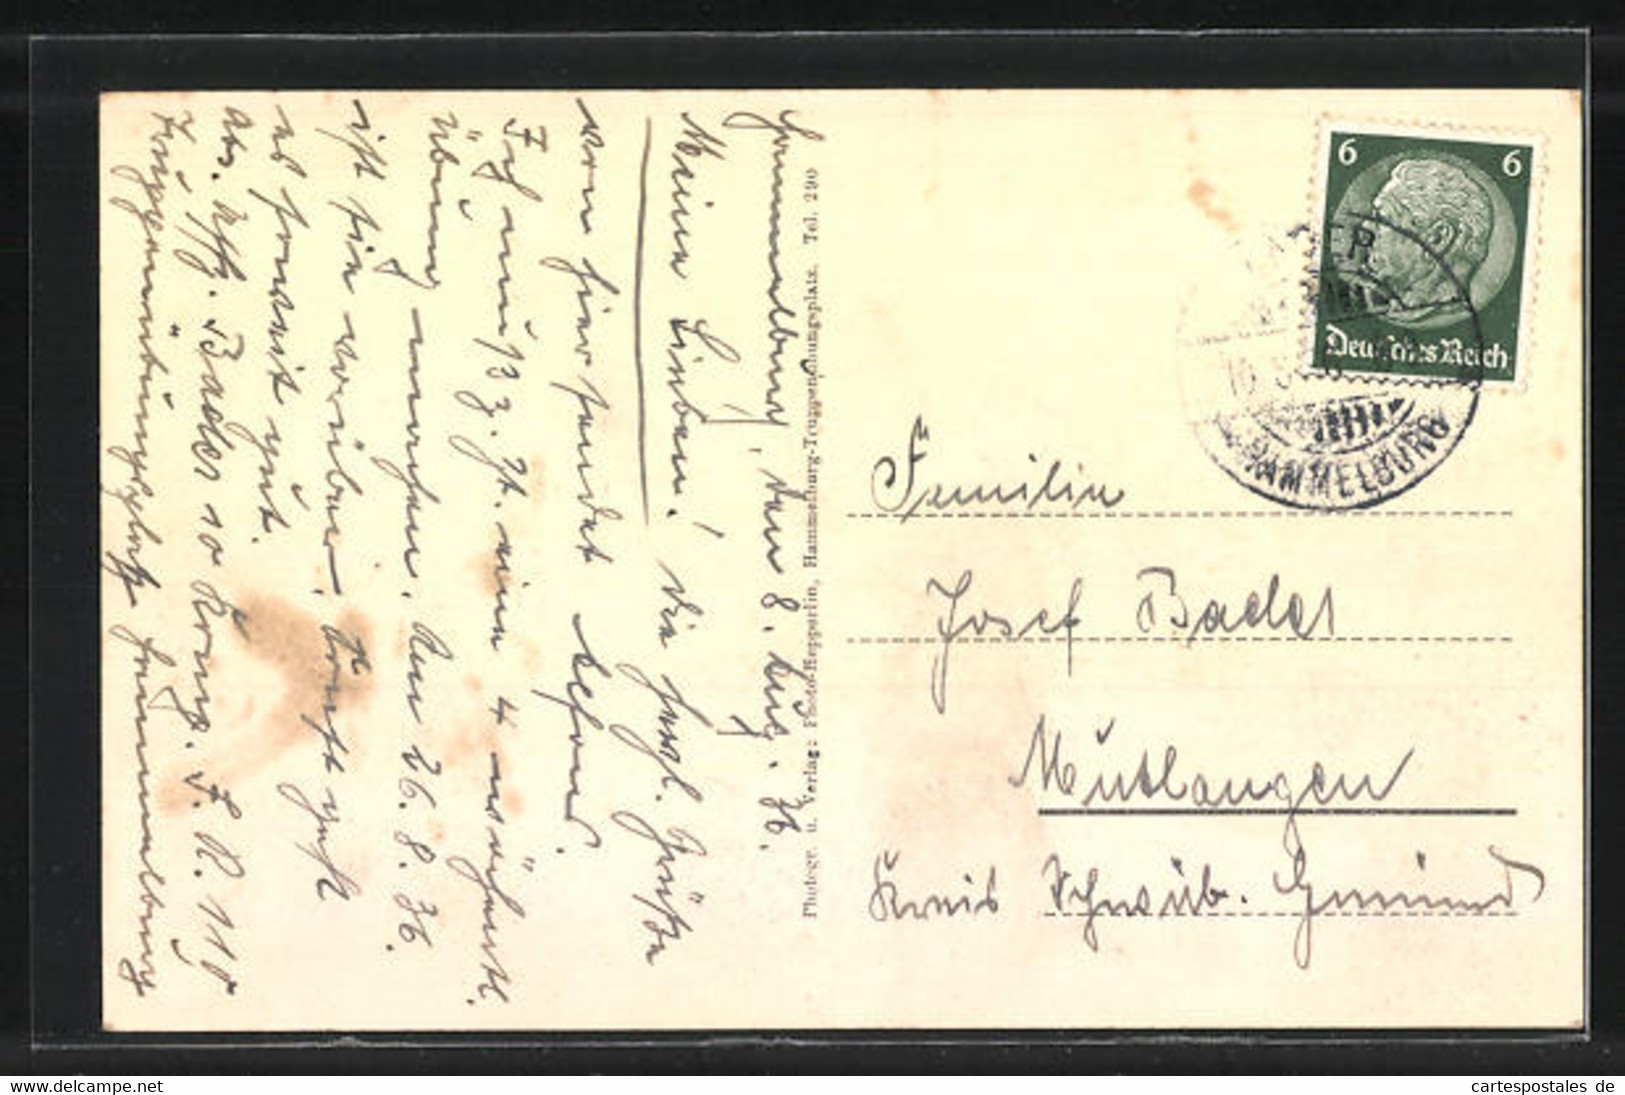 Hammelburg, den 8. Aug. 36.
Meine Lieben! Die herzl. Grüße
von hier sendet Alfons.
Ich muß z. Zt. eine 4 wöchentl.
Übung machen. Am 26. 8. 36.
ist sie vorüber. Sonst geht
es soweit gut.
Abs. Bader 10 Komp. I. R. 119
Truppenübungsplatz Hammelburg
Photogr. u. Verlag: Photo-Hepperlin, Hammelburg-Truppenübungsplatz. Tel. 290
6 6
Deutsches Reich
HAMMELBURG
Familie
Josef Bader
Mutlangen
Kreis Schwäb. Gmünd
cartespostales.de
www.cartespostales.eu